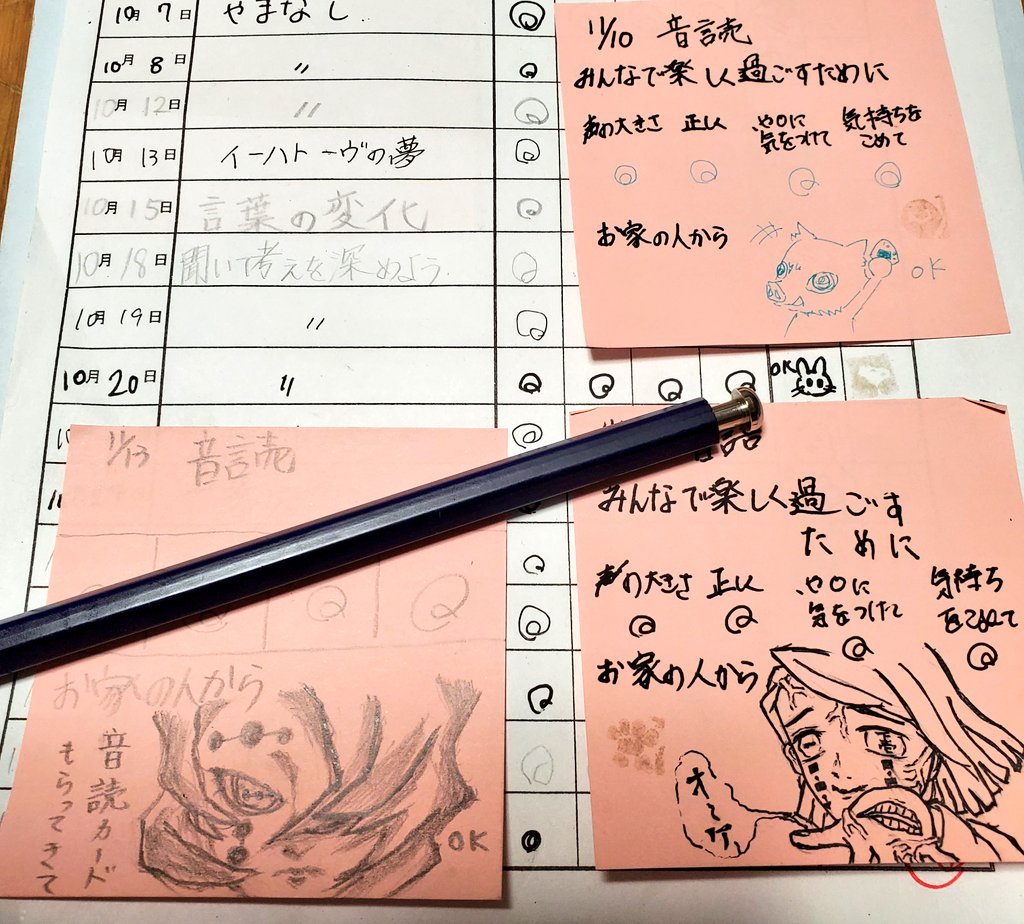 10月7日 やまなし
10月8日 〃
10月12日 〃
10月13日 イーハトーヴの夢
10月15日 言葉の変化
10月18日 聞いて考えを深めよう
10月19日 〃
10月20日 〃
OK
11/10 音読
みんなで楽しく過ごすために
声の大きさ 正しく 、や。に気をつけて 気持ちをこめて
お家の人から
OK
11/13 音読
お家の人から
音読カード
もらってきて
OK
みんなで楽しく過ごす
ために
声の大きさ 正しく 、や。に気をつけて 気持ちをこめて
お家の人から
オーケー